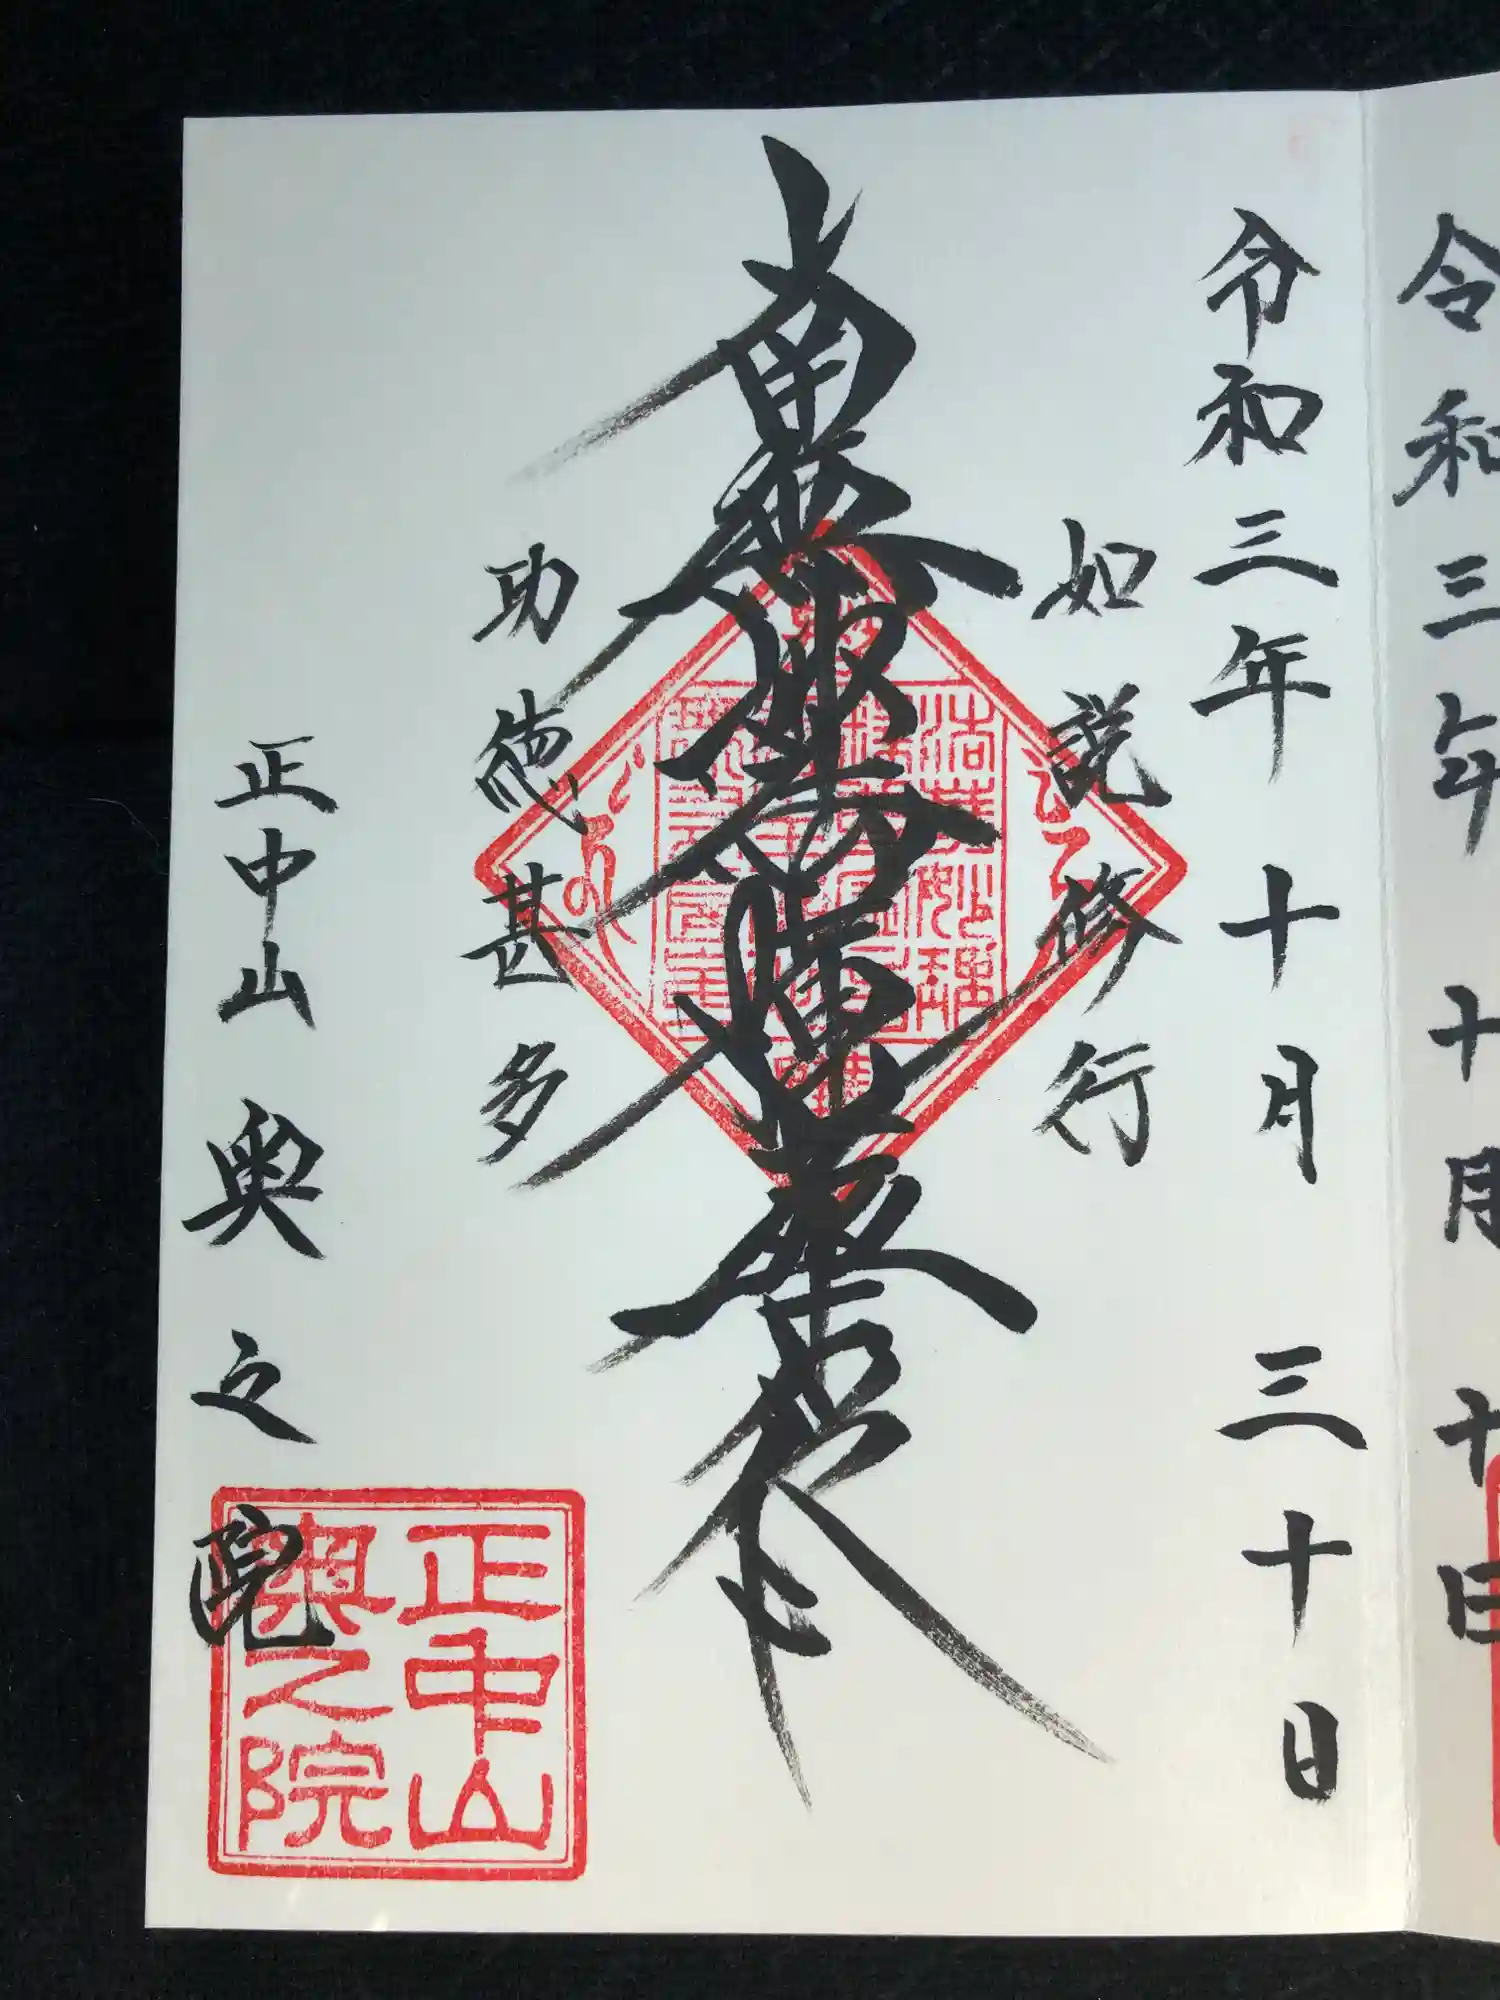 令和三年十月廿日
令和三年十月三十日
如説修行
南無妙法蓮華経
功徳甚多
正中山奥之院
正中山
奥之院